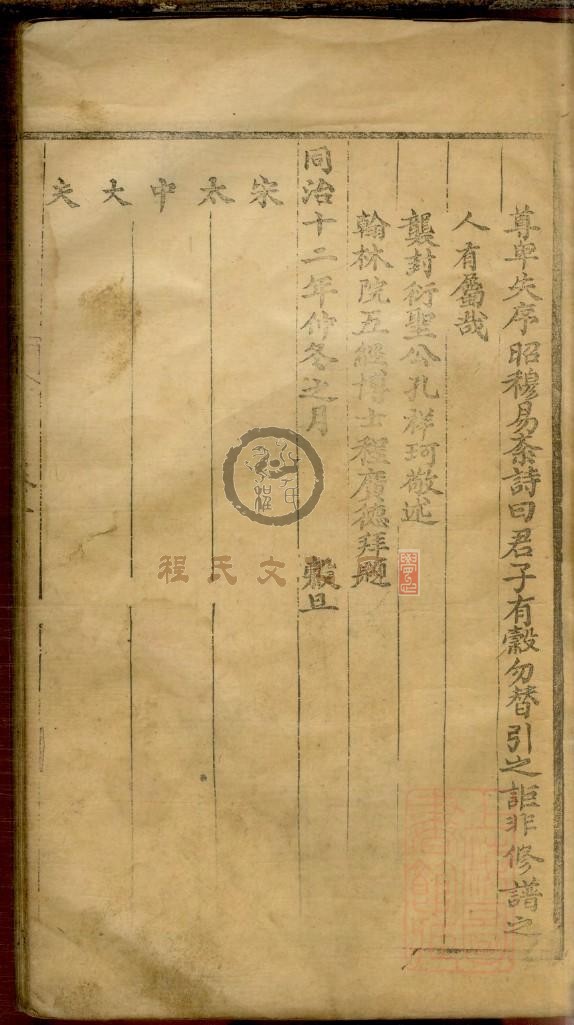 尊卑失序昭穆易紊詩曰君子有穀勿替引之詎非修譜之
人有屬哉
襲封衍聖公孔祥珂敬述
翰林院五經博士程廣德拜題
同治十二年仲冬之月 穀旦
宋太中大夫
程氏文